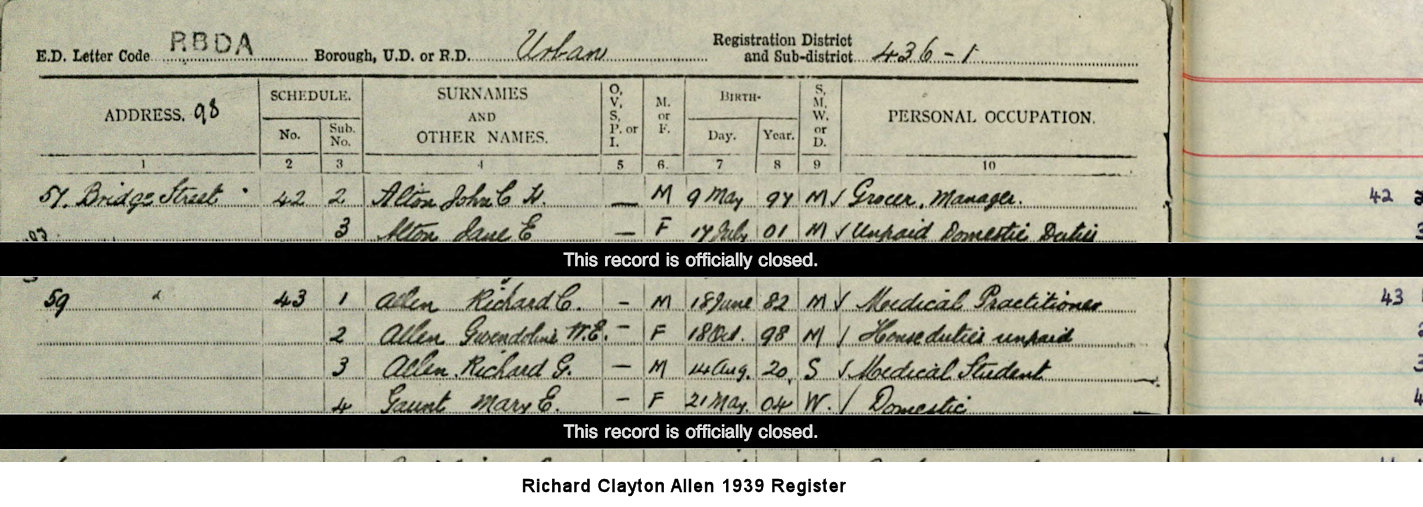 E.D. Letter Code RBDA Borough, U.D. or R.D. Urban Registration District and Sub-district 436-1
ADDRESS. 98 SCHEDULE. No. Sub. No. SURNAMES AND OTHER NAMES. O, V, S, P. or I. M. or F. BIRTH- Day. Year. S, M, W. or D. PERSONAL OCCUPATION.
1 2 3 4 5 6. 7 8 9 10
57. Bridge Street 42 2 Alton John C H. — M 9 May 97 M ✓ Grocer, Manager. 42 2
3 Alton Jane E — F 17 July 01 M ✓ Unpaid Domestic Duties 3
This record is officially closed.
59 " 43 1 Allen Richard C. – M 18 June 82 M ✓ Medical Practitioner 43
2 Allen Gwendoline W.E. – F 18 Oct. 98 M / House duties unpaid 2
3 Allen Richard G. — M 14 Aug. 20 S ✓ Medical Student 3
4 Gaunt Mary E. – F 21 May. 04 W. / Domestic 4
This record is officially closed.
Richard Clayton Allen 1939 Register